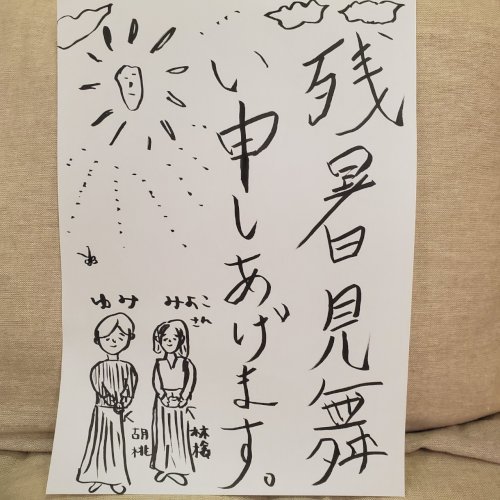 残暑見舞
い申しあげます。
みよこ
さん
ゆみ
林檎
胡桃